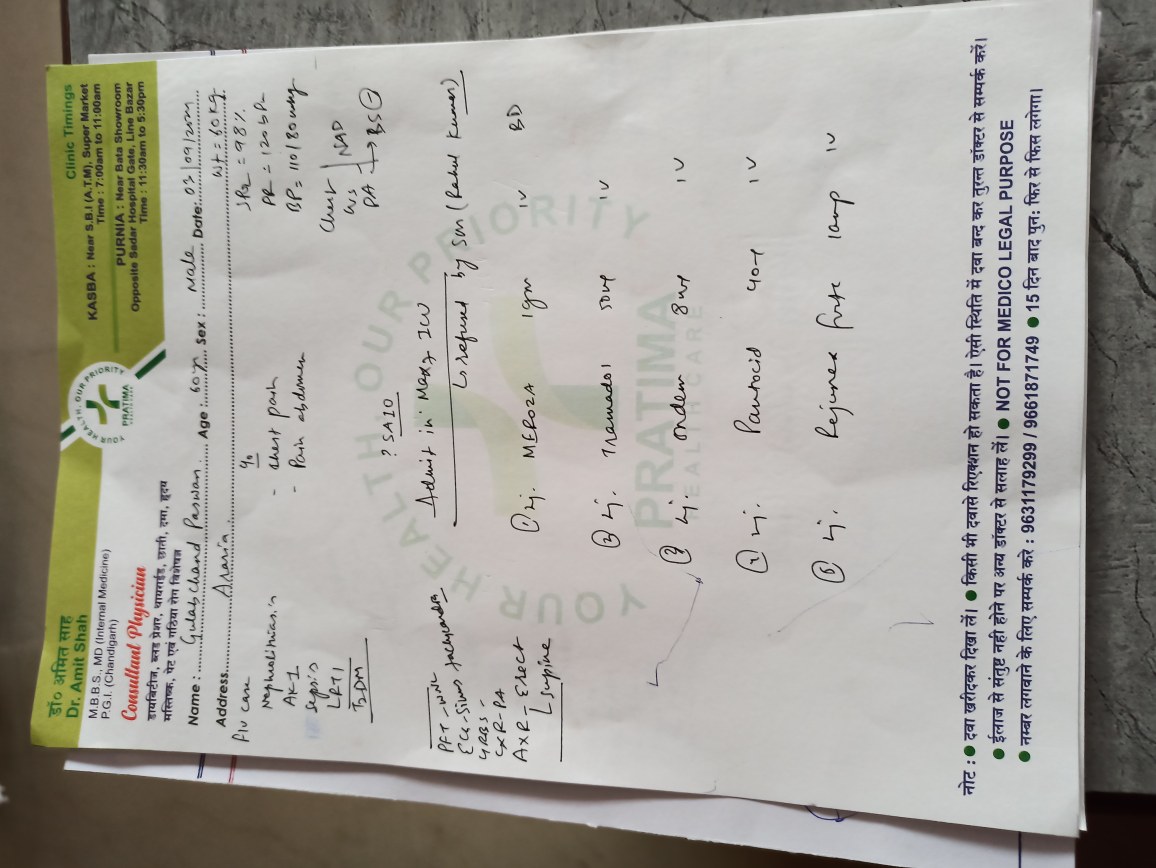 डॉ० अमित साह
Dr. Amit Shah
M.B.B.S., MD (Internal Medicine)
P.G.I. (Chandigarh)
Consultant Physician
डायबिटीज, ब्लड प्रेशर, थायराईड, छाती, दमा, हृदय
मस्तिष्क, पेट एवं गठिया रोग विशेषज्ञ
YOUR HEALTH, OUR PRIORITY
PRATIMA
Clinic Timings
KASBA : Near S.B.I (A.T.M), Super Market
Time : 7:00am to 11:00am
PURNIA : Near Bata Showroom
Opposite Sadar Hospital Gate, Line Bazar
Time : 11:30am to 5:30pm
Name : Gulabchand Paswan Age : 60 yr Sex : Male Date:
Address Araria Wt = 60 kg
F/U case
Nephrolithiasis
AKI
Sepsis
LRTI
T2DM
- Chest pain
- Pain abdomen
SPO2 = 98%
PR = 120 bpm
BP = 110/80 mmHg
Chest
NAD
PA → BS
? SAIO
Admit in Max 7 ICU
↳ refused by son (Rahul Kumar)
ECG - Sinus tachycardia
CXR - PA
AXR - Erect
Supine
① Inj. MEROZA 1gm IV BD
② Inj. Tramadol 50mg IV
③ Inj. Ondem 8mg IV
④ Inj. Pantocid 40mg IV
⑤ Inj. Rejunex forte 1amp IV
YOUR HEALTH, OUR PRIORITY
PRATIMA
HEALTH CARE
नोट : ● दवा खरीदकर दिखा लें। ● किसी भी दवासे रिएक्शन हो सकता है। ऐसी स्थिति में दवा बन्द कर तुरन्त डॉक्टर से सम्पर्क करें।
● ईलाज से संतुष्ट नही होने पर अन्य डॉक्टर से सलाह लें। ● NOT FOR MEDICO LEGAL PURPOSE
● नम्बर लगवाने के लिए सम्पर्क करे : 9631179299 / 9661871749 ● 15 दिन बाद पुनः फिर से फिस लगेगा।